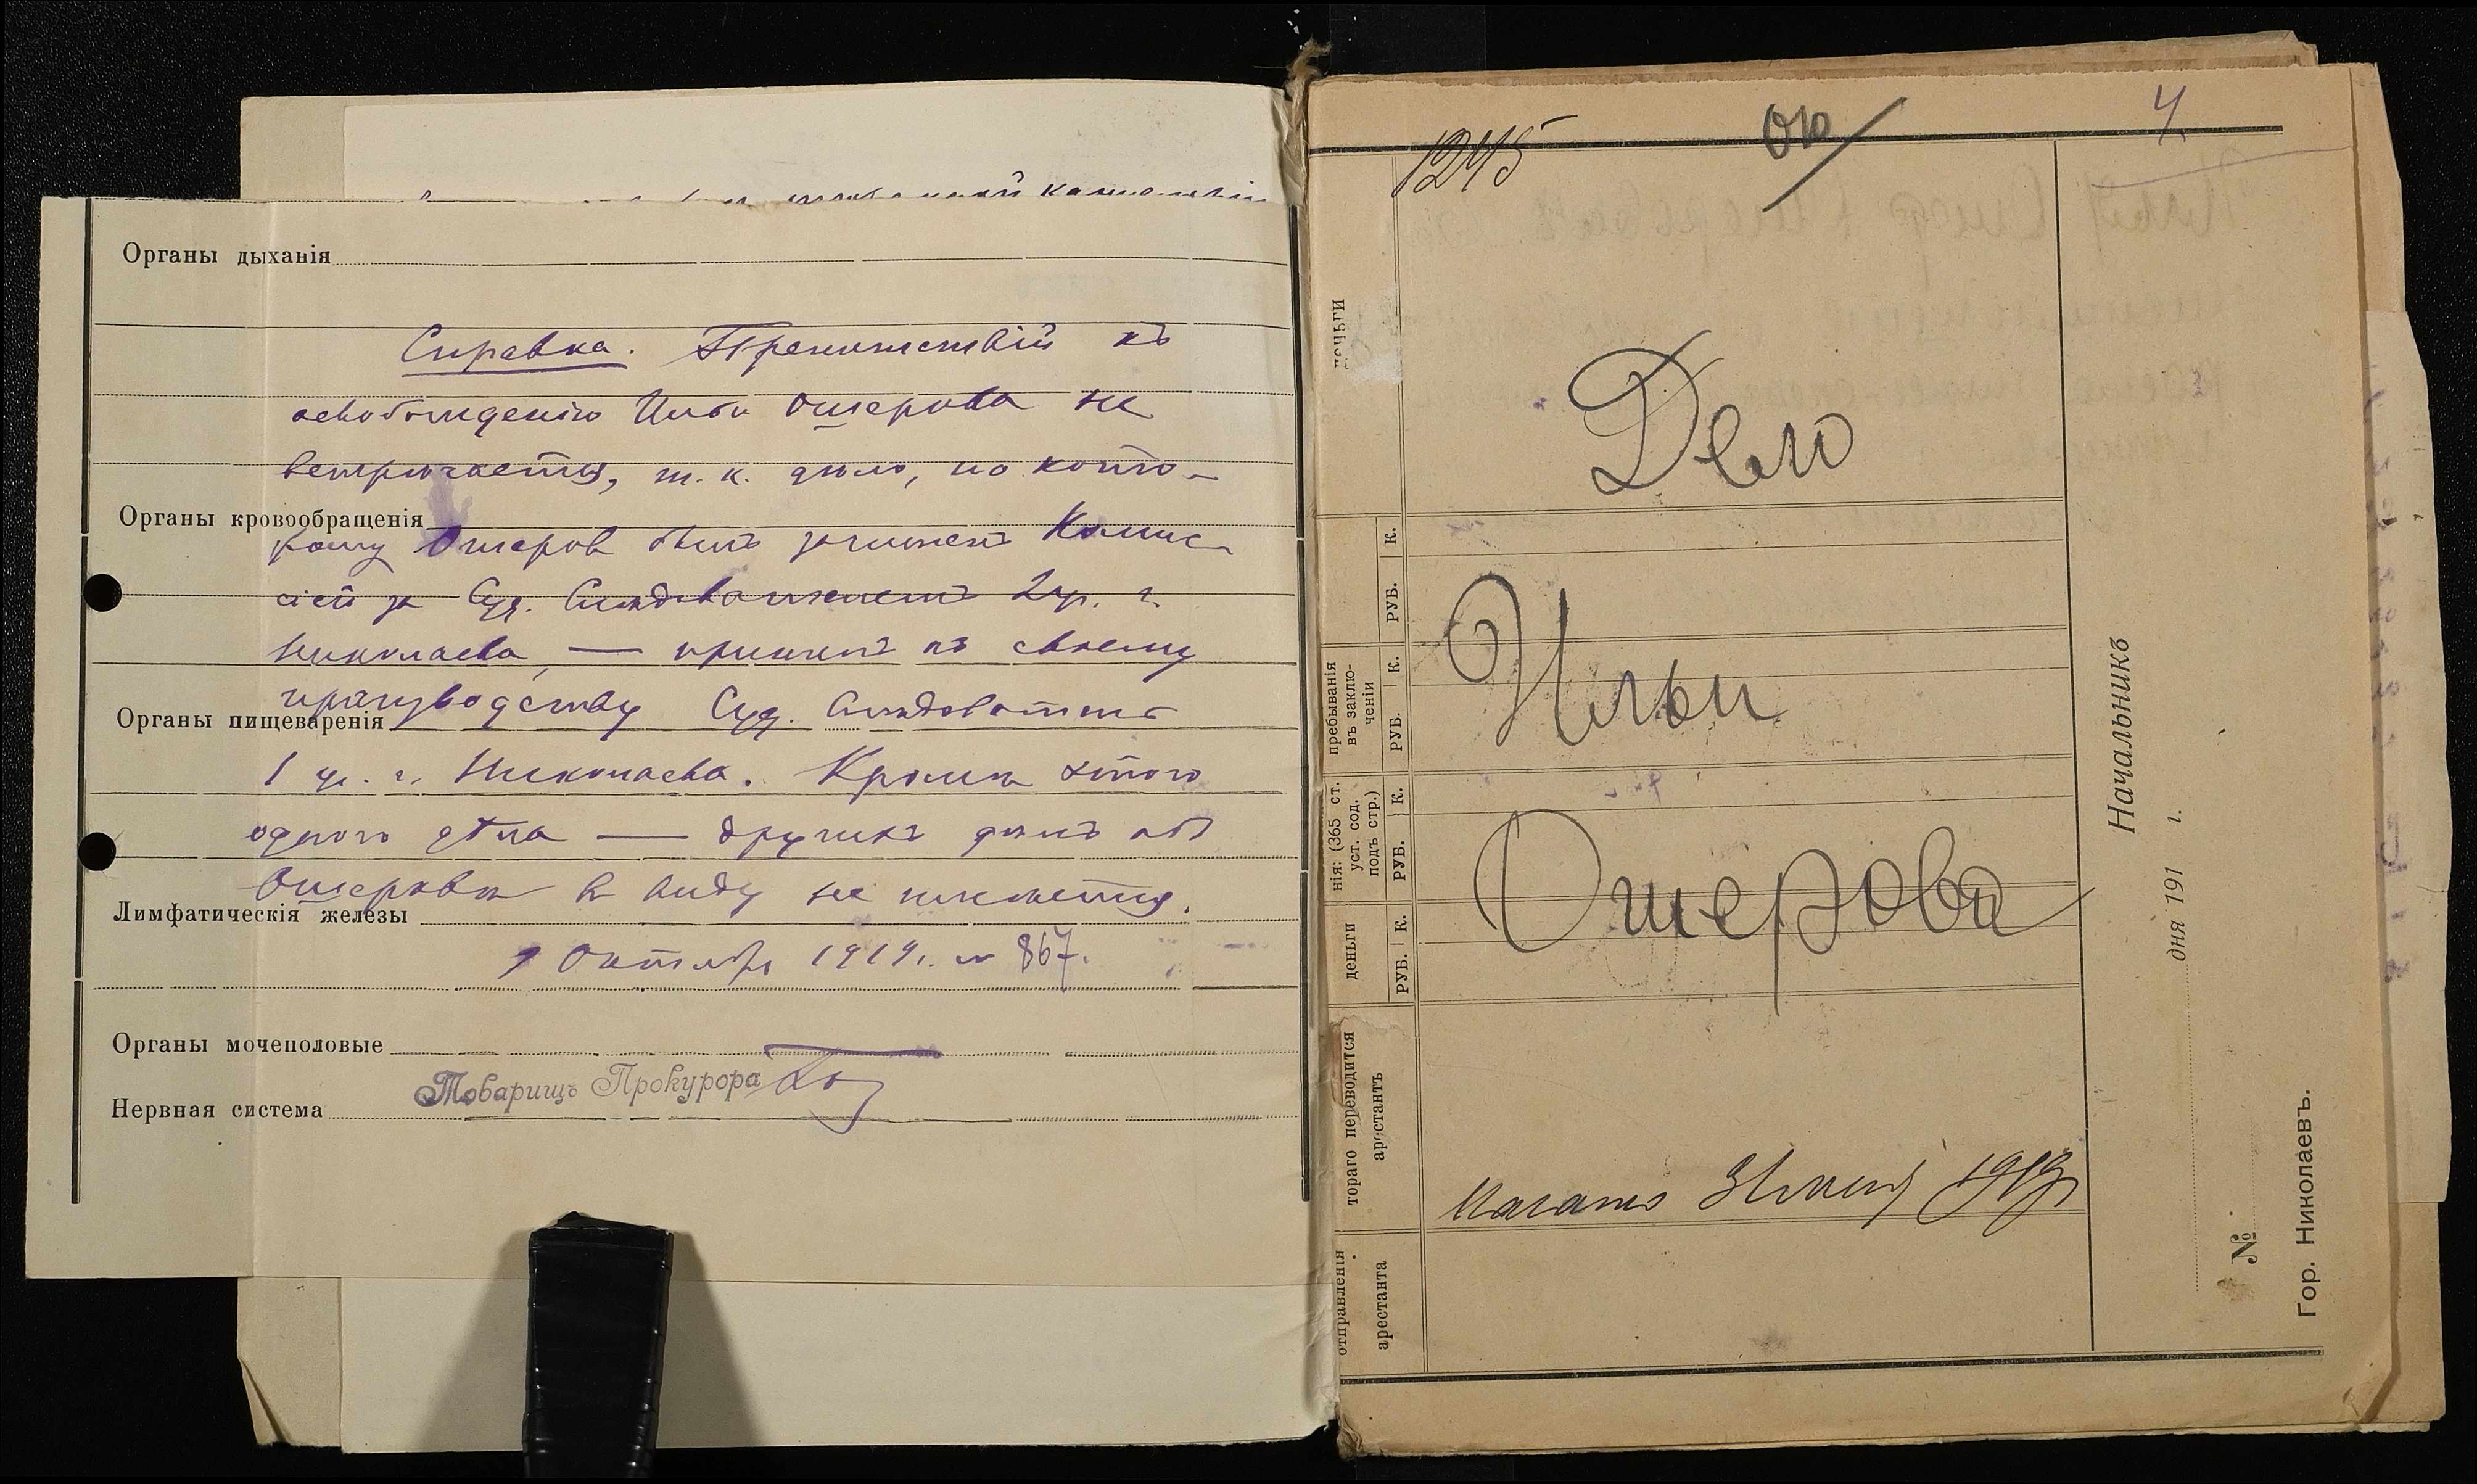 Органы дыханія
Справка. Препятствій къ
освобожденію Ильи Ошерова не
встрѣчается, т. к. дѣло, по кото-
Органы кровообращенія
рому Ошеров былъ зачисленъ Комис-
сіей за Суд. Слѣдователемъ 2 уч. г.
Николаева, — принято къ своему
производству Суд. Слѣдователемъ
Органы пищеваренія
1 уч. г. Николаева. Кромѣ этого
одного дѣла — другихъ дѣлъ объ
Ошеровѣ в виду не имѣется.
Лимфатическія железы
Октября 1919 г. № 867.
Органы мочеполовые
Товарищъ Прокурора
Нервная система
1245
4
Дело
Ильи
Ошерова
1919
деньги
РУБ. К.
пребыванія
въ заклю-
ченіи
РУБ. К.
нія: (365 ст.
уст. сод.
подъ стр.)
РУБ. К.
деньги
РУБ. К.
тораго переводится
арестантъ
отправленія
арестанта
Начальникъ
дня 191 г.
№
Гор. Николаевъ.